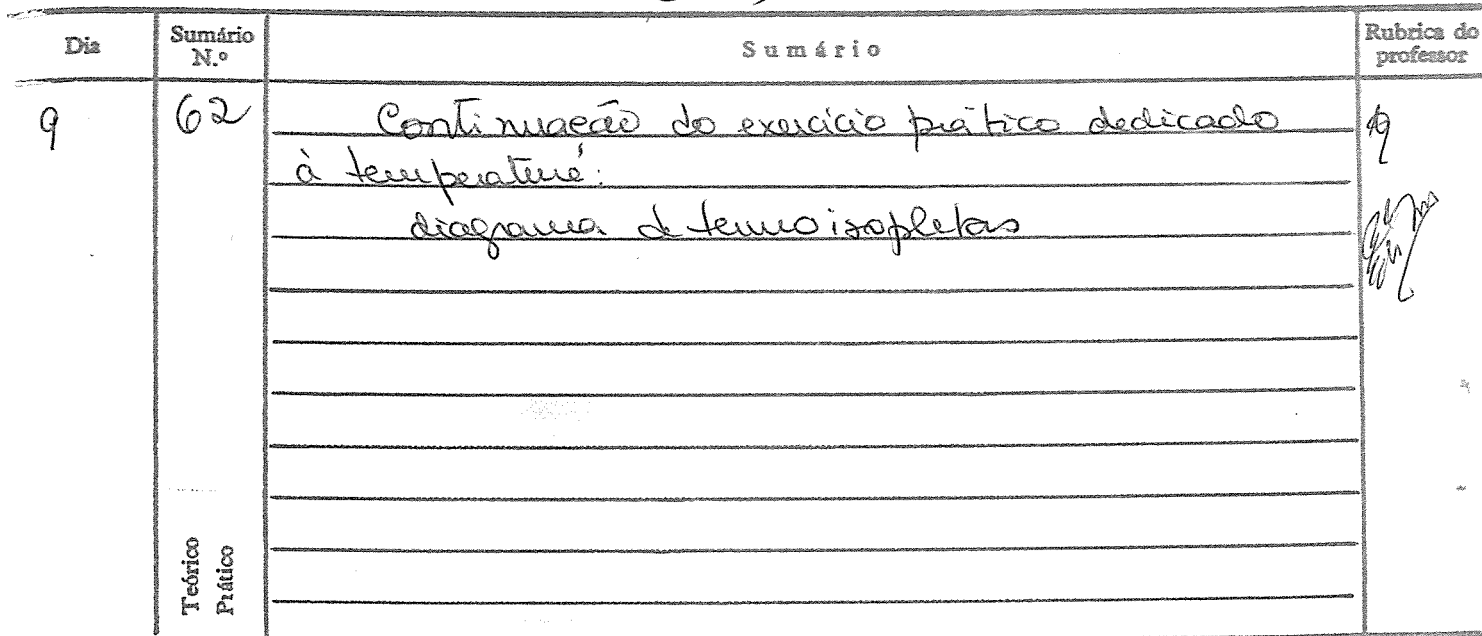 Dia Sumário N.º Sumário Rubrica do professor
9 62 Continuação do exercício prático dedicado
à temperatura:
diagrama de termoisopletas
Teórico
Prático